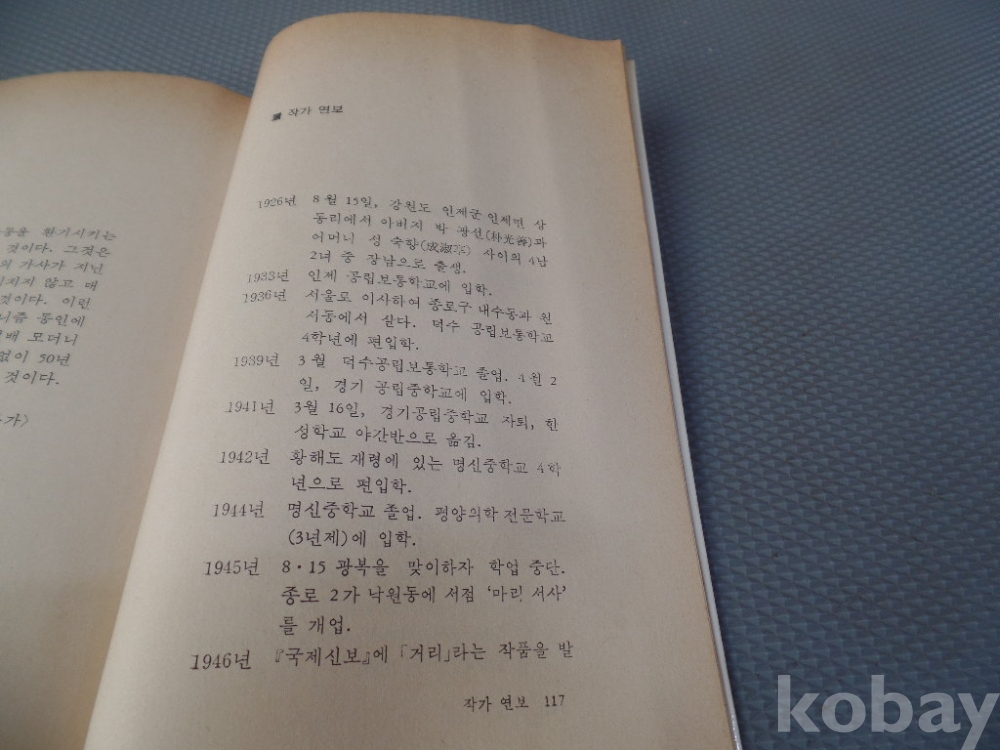 동을 환기시키는
것이다. 그것은
의 가사가 지닌
지지 않고 매
것이다. 이런
니즘 동인에
배 모더니
없이 50년
것이다.
가〉
작가 연보
1926년 8월 15일, 강원도 인제군 인제면 상
동리에서 아버지 박 광선(朴光善)과
어머니 성 숙형(成淑亨) 사이의 4남
2녀 중 장남으로 출생.
1933년 인제 공립보통학교에 입학.
1936년 서울로 이사하여 종로구 내수동과 원
서동에서 살다. 덕수 공립보통학교
4학년에 편입학.
1939년 3월 덕수공립보통학교 졸업. 4월 2
일, 경기 공립중학교에 입학.
1941년 3월 16일, 경기공립중학교 자퇴, 한
성학교 야간반으로 옮김.
1942년 황해도 재령에 있는 명신중학교 4학
년으로 편입학.
1944년 명신중학교 졸업. 평양의학 전문학교
(3년제)에 입학.
1945년 8·15 광복을 맞이하자 학업 중단.
종로 2가 낙원동에 서점 '마리 서사'
를 개업.
1946년 『국제신보』에 「거리」라는 작품을 발
작가 연보 117
kobay